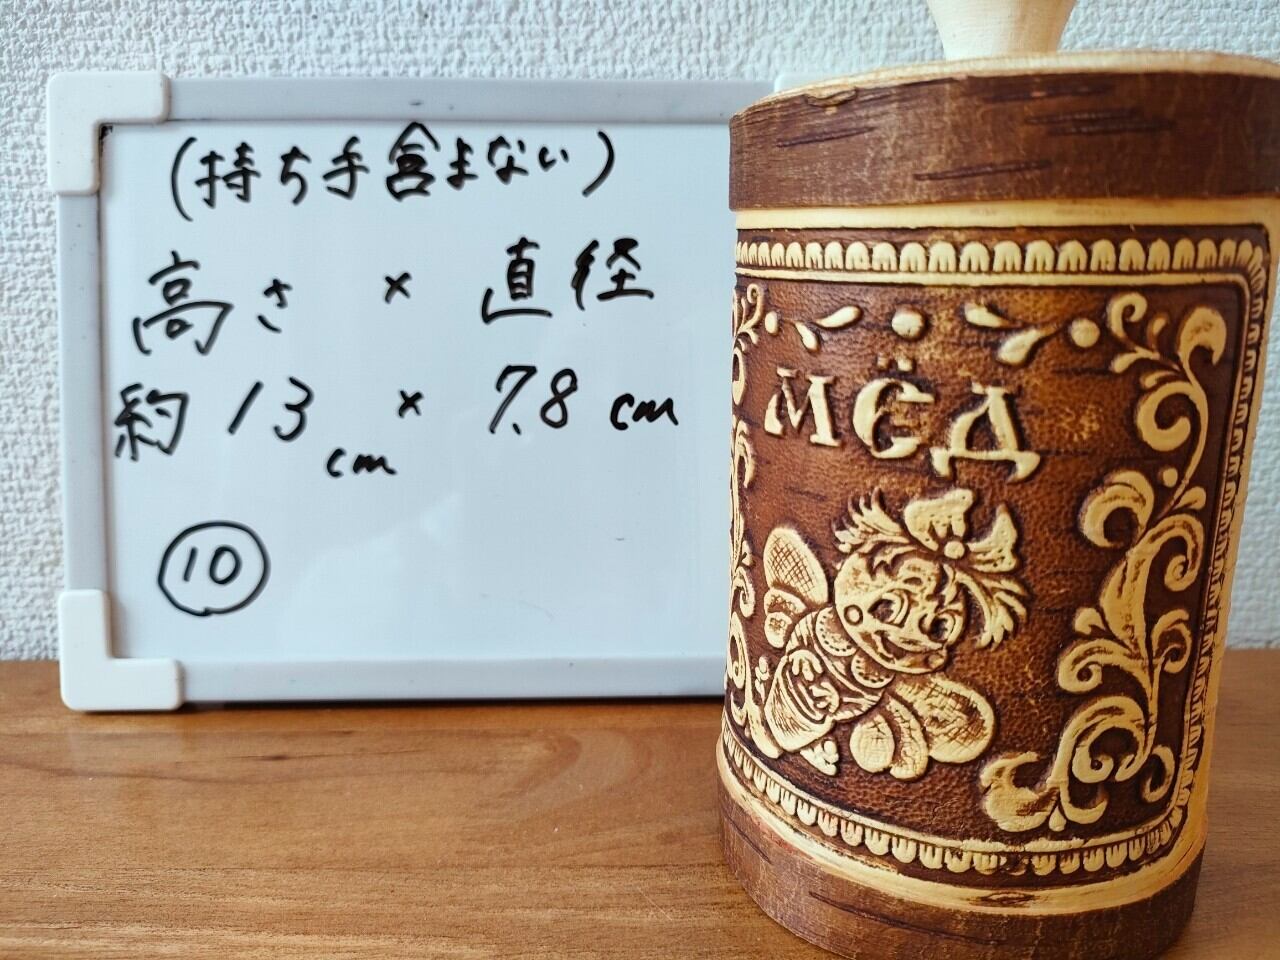 (持ち手含まない)
高さ × 直径
約13cm × 7.8cm
⑩
МЁД